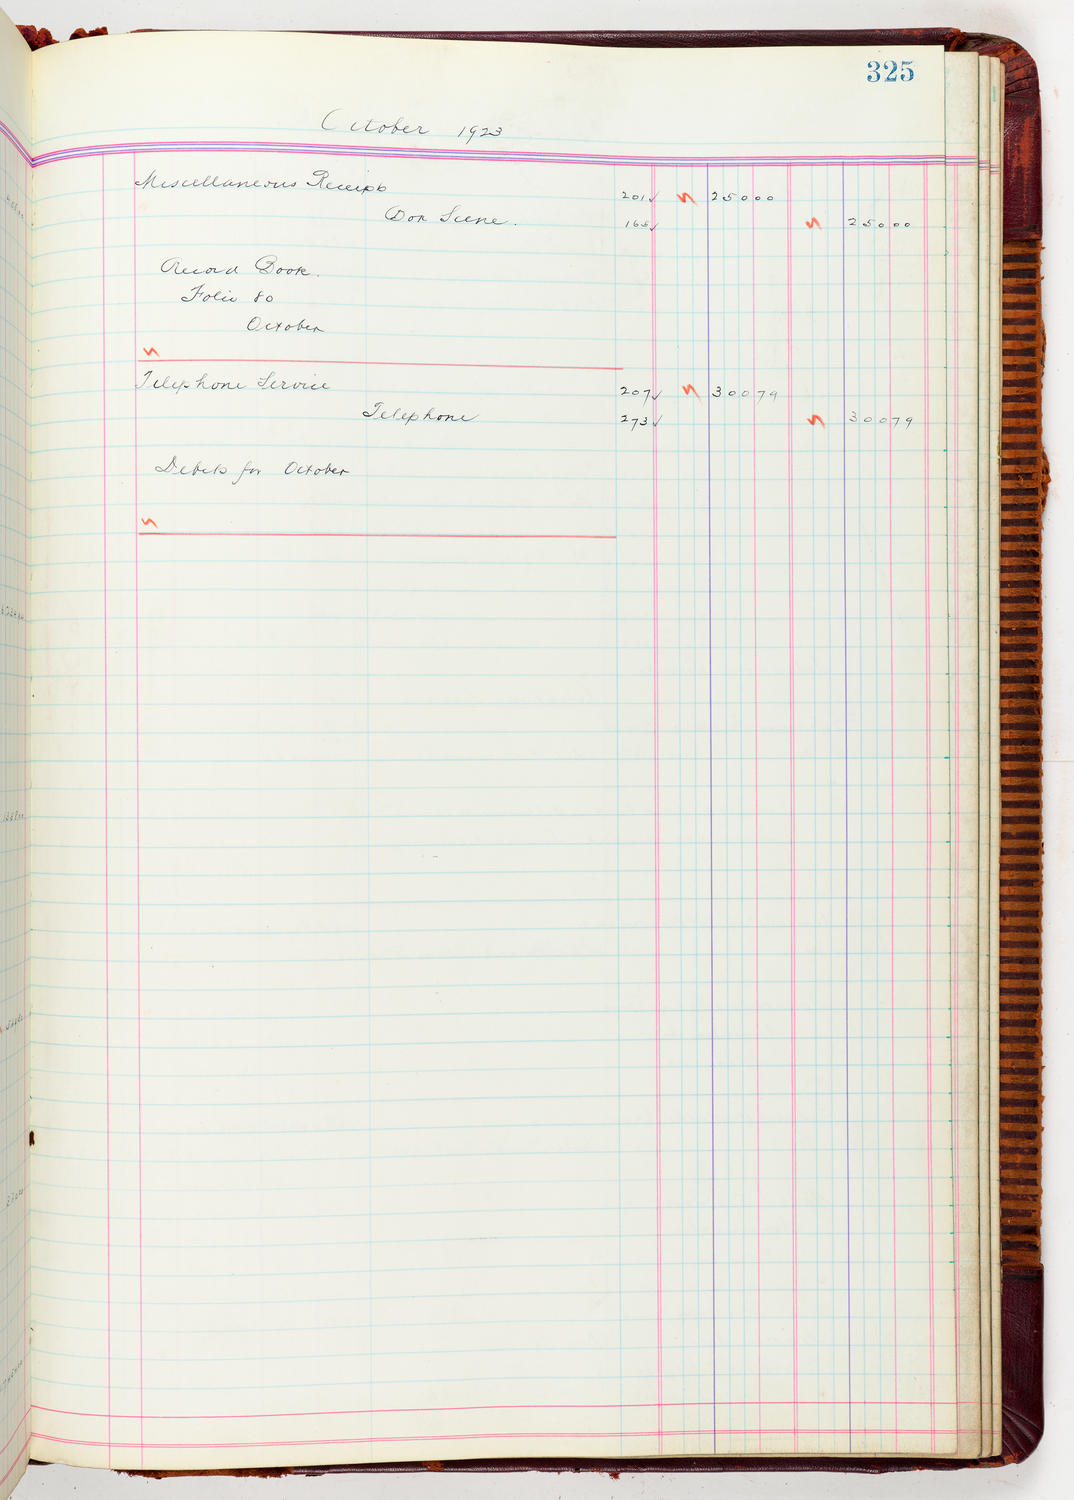 325
October 1923
Miscellaneous Receipts 201✓ 25000
Box Scene. 165✓ 25000
Record Book.
Folio 80
October
Telephone Service 207✓ 30079
Telephone 273✓ 30079
Debits for October